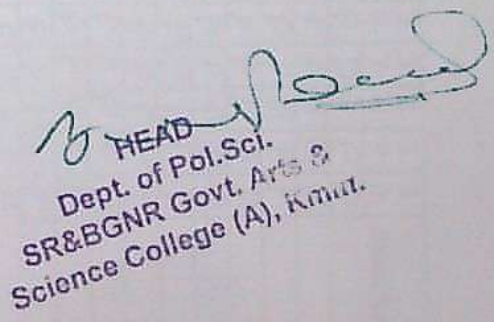 HEAD
Dept. of Pol.Sci.
SR&BGNR Govt. Arts &
Science College (A), Kmm.